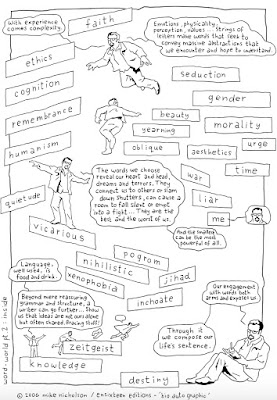 With experience
comes complexity.
faith
Emotions, physicality,
perception, values ...... Strings of
letters make words that seek to
convey massive abstractions that
we encounter and hope to understand.
ethics
cognition
seduction
gender
remembrance
beauty
morality
yearning
urge
humanism
oblique
aesthetics
time
war
The words we choose
reveal our heart and head,
dreams and terrors. They
connect us to others or slam
down shutters, can cause a
room to fall silent or erupt
into a fight.... They are the
best and the worst of us.
quietude
liar
me
And the smallest
can be the most
powerful of all.
vicarious
pogrom
Language,
well used, is
food and drink.
nihilistic
jihad
xenophobia
Our engagement
with words both
arms and exposes us
inchoate
Beyond mere reassuring
grammar and structure, a
writer can go further.... Show
us that ideas are not ours alone
but often shared. Bracing stuff!
zeitgeist
Through it
we compose our
life's sentence.
knowledge
destiny
word-world pt. 2: inside
© 2006 mike nicholson / Ensixteen editions - 'bio auto graphic'